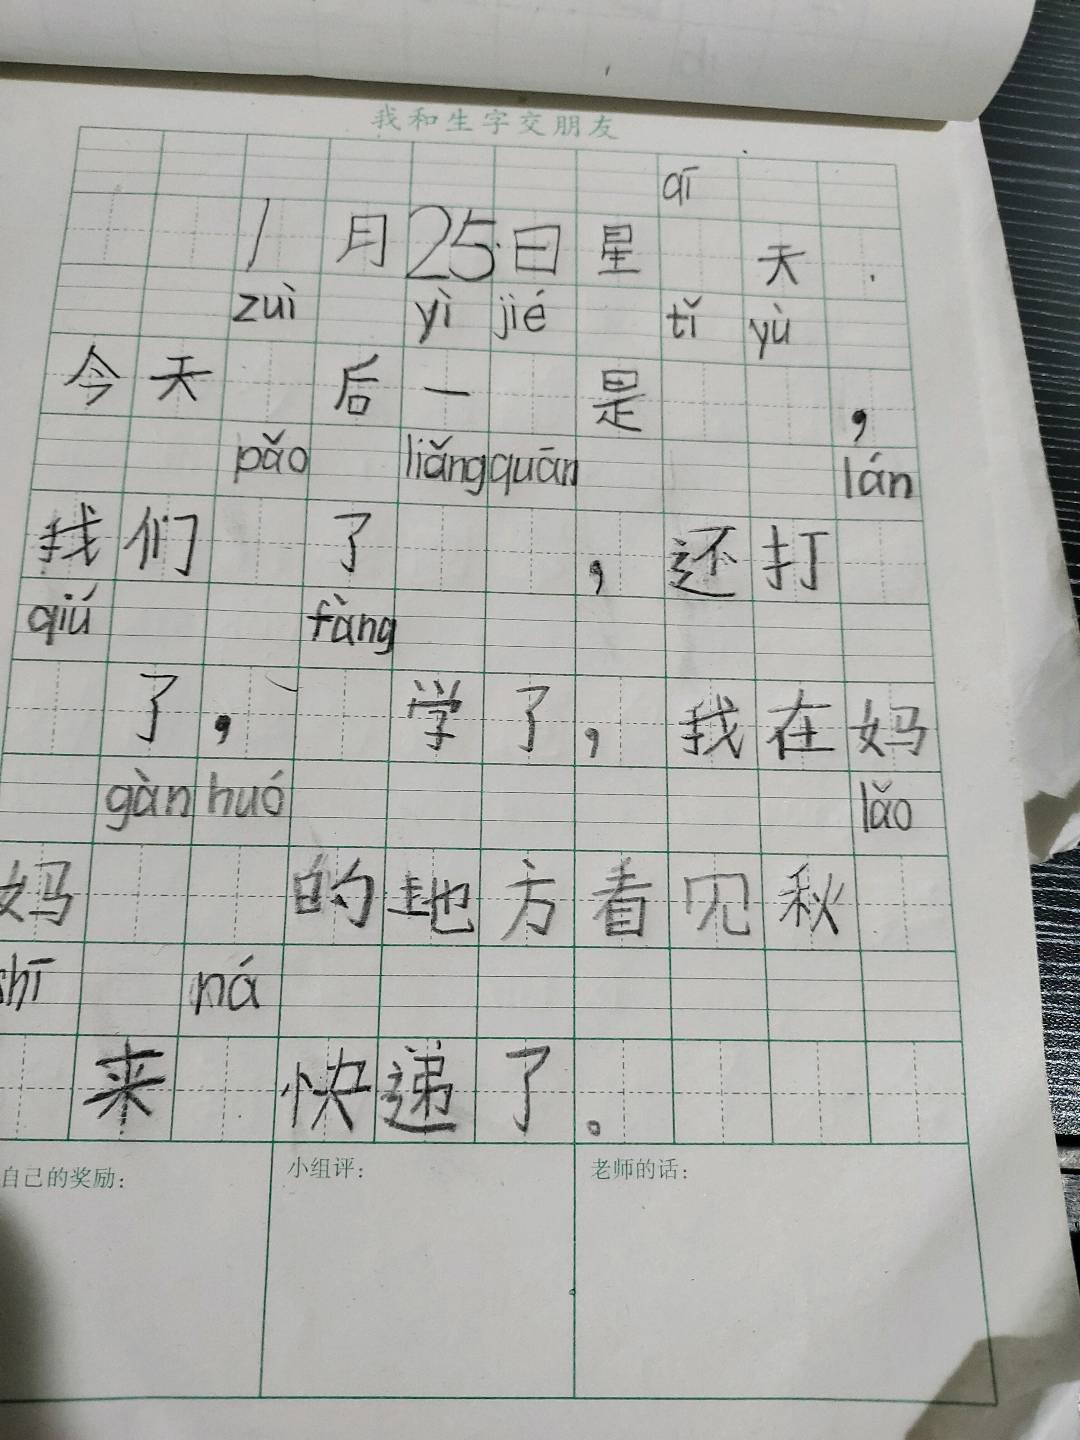 我和生字交朋友
qī
1月25日星 天.
zuì yì jié tǐ yù
今天 后一 是 ，
pǎo liǎng quān lán
我们 了 ，还打
qiú fàng
了， 学了，我在妈
gàn huó lǎo
妈 的地方看见秋
shī ná
来 快递了。
自己的奖励：
小组评：
老师的话：